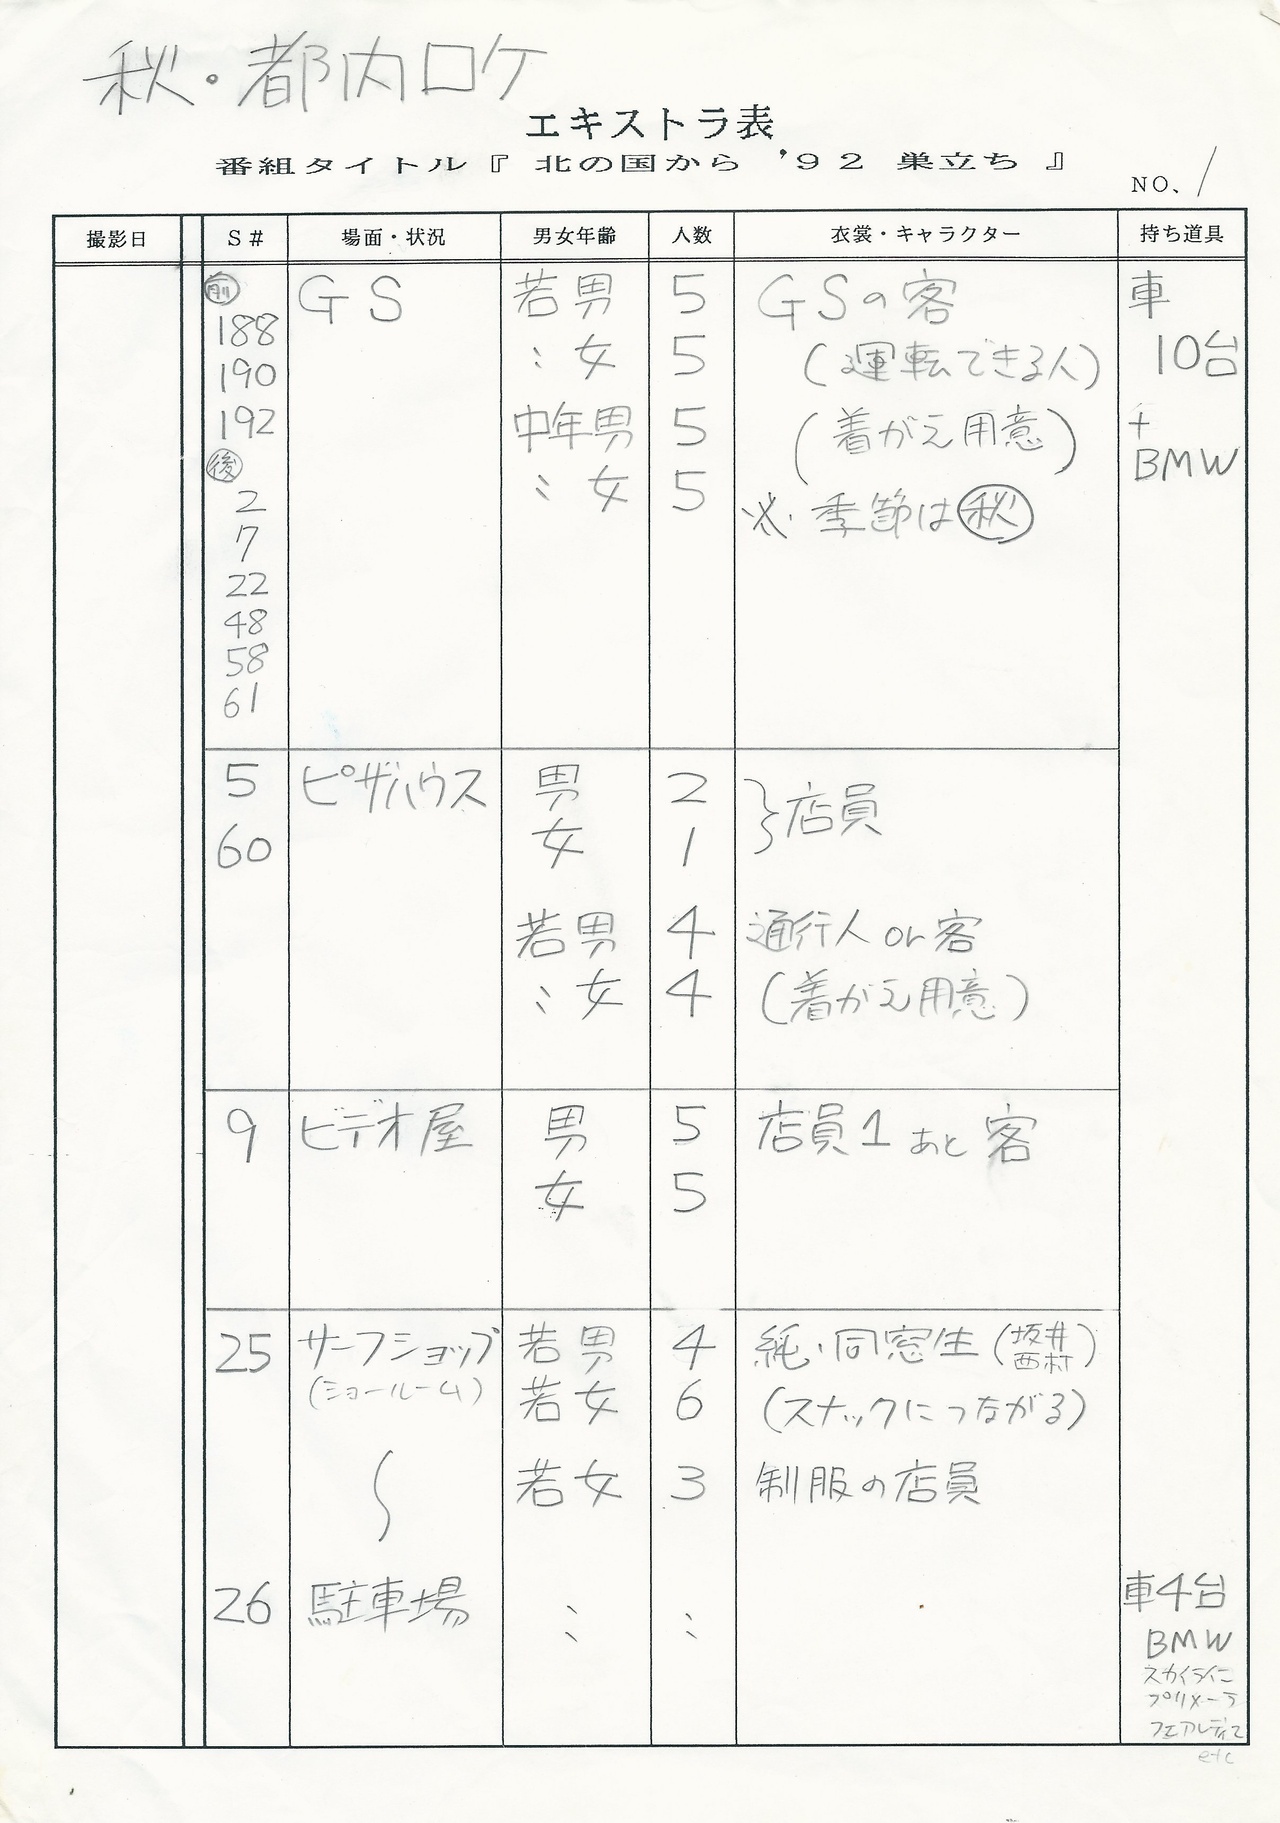 秋・都内ロケ
エキストラ表
番組タイトル『 北の国から '92 巣立ち 』
NO. 1
撮影日 S# 場面・状況 男女年齢 人数 衣裳・キャラクター 持ち道具
前 GS 若男 5 GSの客 車
188 〃女 5 (運転できる人) 10台
190
192 中年男 5 (着がえ用意) +
後 〃女 5 BMW
2 ※季節は秋
7
22
48
58
61
5 ピザハウス 男 2 }店員
60 女 1
若男 4 通行人or客
〃女 4 (着がえ用意)
9 ビデオ屋 男 5 店員1 あと客
女 5
25 サーフショップ 若男 4 純・同窓生(坂井 西村)
(ショールーム) 若女 6 (スナックにつながる)
〜 若女 3 制服の店員
26 駐車場 〃 〃 車4台
BMW
スカイライン
プリメーラ
フェアレディZ
etc